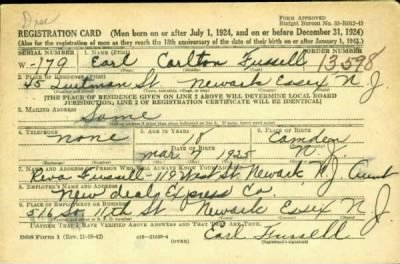 FORM APPROVED
REGISTRATION CARD—(Men born on or after July 1, 1924, and on or before December 31, 1924)
(Also for the registration of men as they reach the 18th anniversary of the date of their birth on or after January 1, 1925.)
SERIAL NUMBER 1. NAME ORDER NUMBER
W-179 Earl Carlton Fussell 13598
2. PLACE OF RESIDENCE (Print)
45 St. Newark Essex N J
[THE PLACE OF RESIDENCE GIVEN ON LINE 2 ABOVE WILL DETERMINE LOCAL BOARD
JURISDICTION; LINE 2 OF REGISTRATION CERTIFICATE WILL BE IDENTICAL]
3. MAILING ADDRESS
Same
4. TELEPHONE 5. AGE IN YEARS 6. PLACE OF BIRTH
none 18 Camden
DATE OF BIRTH
Mar. 1925 N. J.
7. NAME AND ADDRESS OF PERSON WHO WILL ALWAYS KNOW YOUR ADDRESS
Reva Fussell West St Newark N.J. Aunt
8. EMPLOYER'S NAME AND ADDRESS
Express Co.
9. PLACE OF EMPLOYMENT OR BUSINESS
516 So. 11th St. Newark Essex N J
I AFFIRM THAT I HAVE VERIFIED ABOVE ANSWERS AND THAT THEY ARE TRUE.
DSS Form 1 (OVER) Earl Fussell